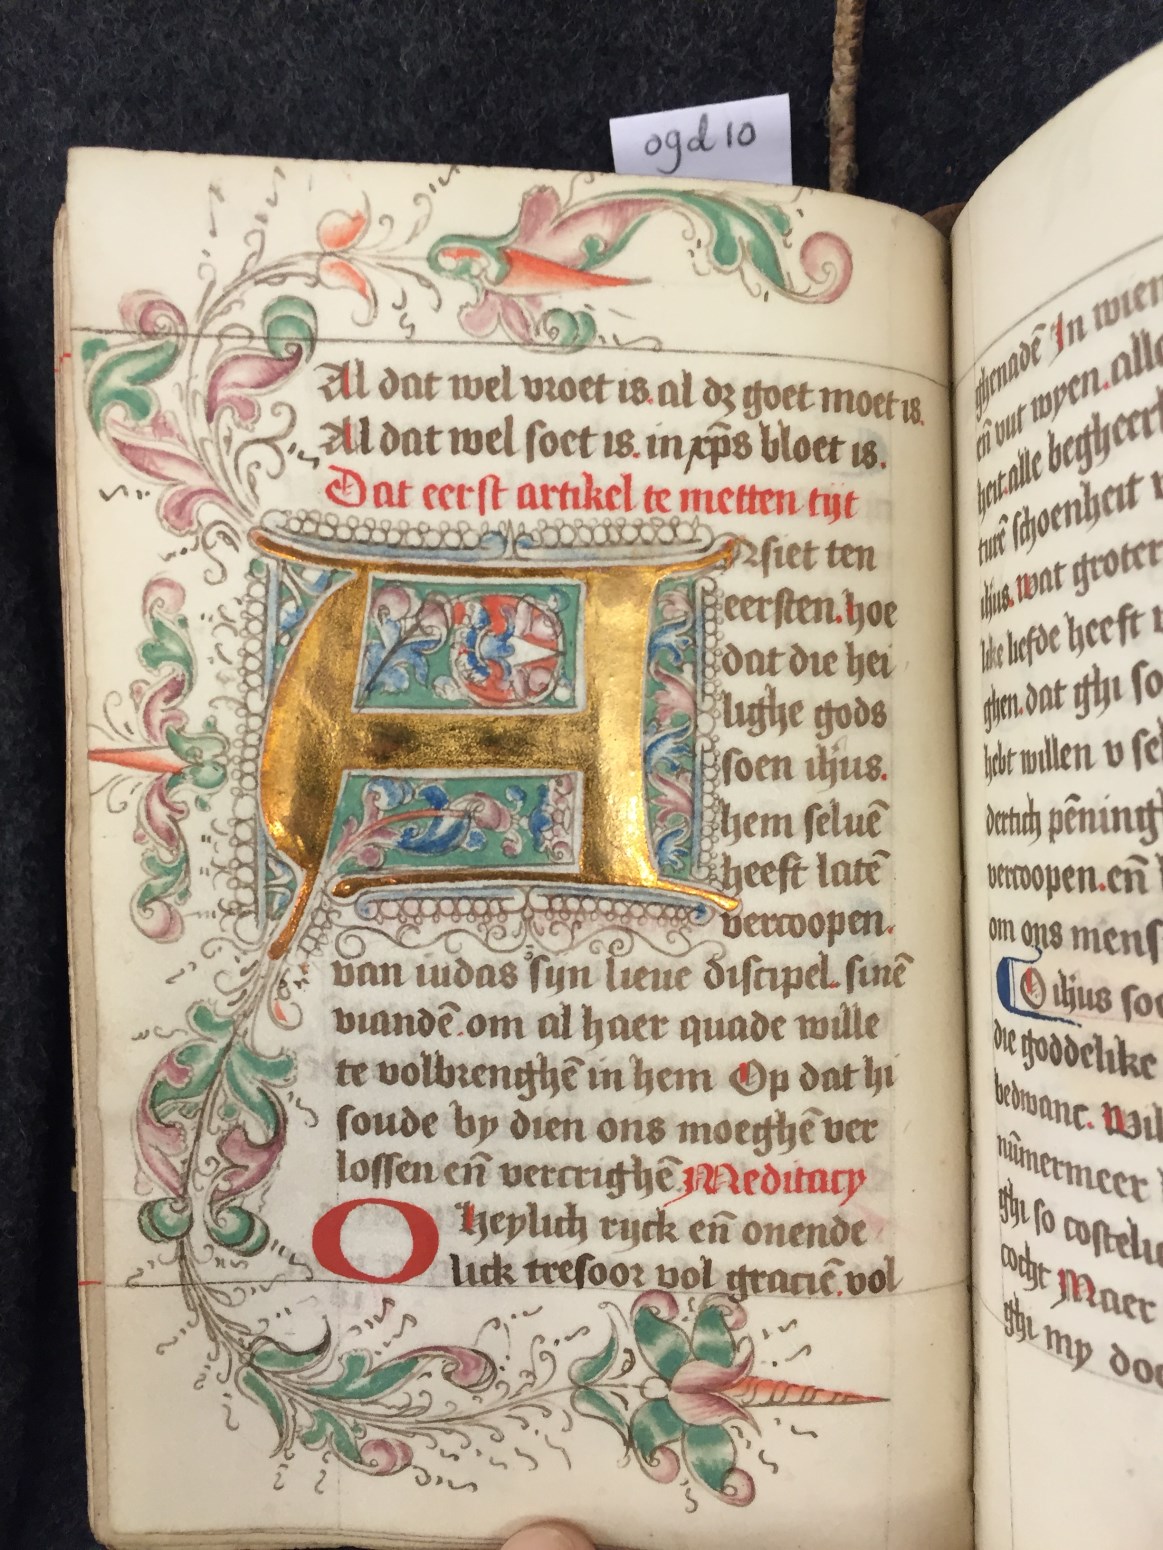 ogd 10
Al dat wel vroet is. al dꝫ goet moet is.
Al dat wel soet is. in xp̄s bloet is.
Dat eerst artikel te metten tijt
Ansiet ten
eersten. hoe
dat die hei
lighe gods
soen ihus.
hem seluē
heeft latē
vercoopen.
van iudas sijn lieue discipel. sinē
viandē. om al haer quade wille
te volbrenghē in hem Op dat hi
soude by dien ons moeghē ver
lossen eñ vercrighē Meditacy
O heylich rijck eñ onende
lick tresoor vol graciē. vol
ghenadē In wien
eñ vut wyen. alle
heit. alle begheerl
turē schoenheit
ihus. wat groter
like liefde heeft
ghen. dat ghi so
hebt willen v se
dertich pēning
vercoopen. eñ
om ons mens
O ihus so
die goddelike
bedwanc. Wil
nūmermeer
ghi so costeli
cocht Maer
ghi my doo